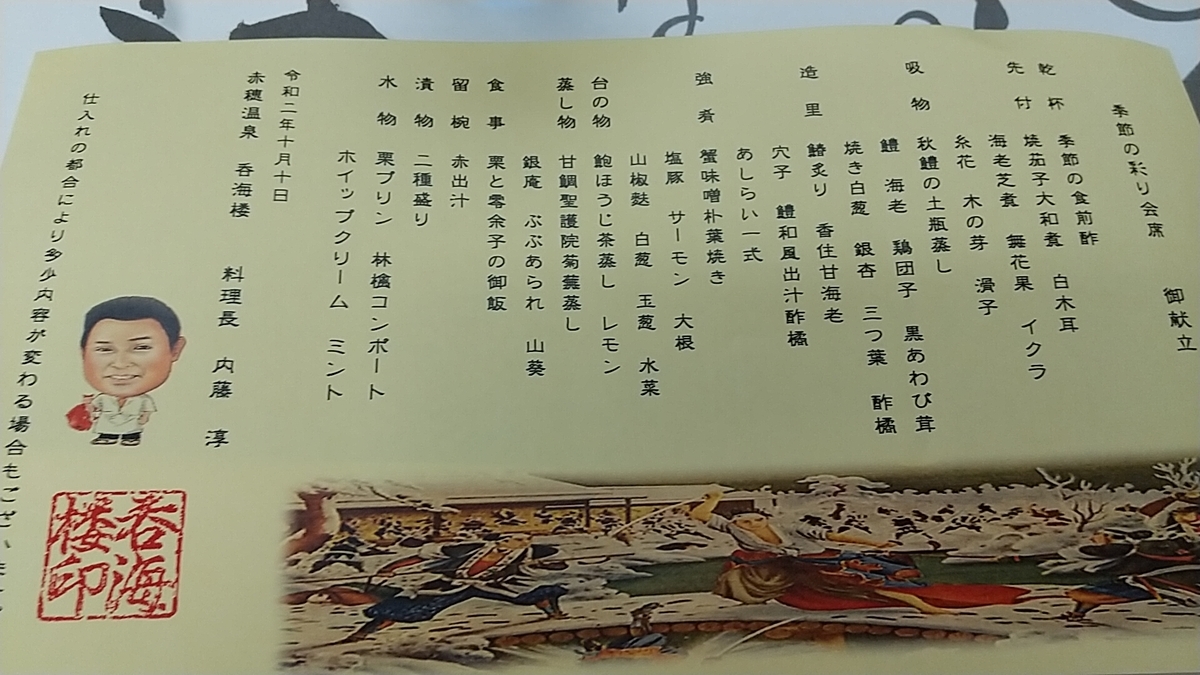 御献立
季節の彩り会席
乾杯 季節の食前酢
先付 焼茄子大和煮 白木耳
海老芝煮 無花果 イクラ
糸花 木の芽 滑子
吸物 秋鱧の土瓶蒸し
鱧 海老 鶏団子 黒あわび茸
焼き白葱 銀杏 三つ葉 酢橘
造里 鰆炙り 香住甘海老
穴子 鱧和風出汁酢橘
あしらい一式
強肴 蟹味噌朴葉焼き
塩豚 サーモン 大根
山椒麩 白葱 玉葱 水菜
台の物 鮑ほうじ茶蒸し レモン
蒸し物 甘鯛聖護院菊蕪蒸し
銀庵 ぶぶあられ 山葵
食事 栗と零余子の御飯
留椀 赤出汁
漬物 二種盛り
水物 栗プリン 林檎コンポート
ホイップクリーム ミント
令和二年十月十日
赤穂温泉 呑海楼
料理長 内藤 淳
仕入れの都合により多少内容が変わる場合もござい
呑海
楼印